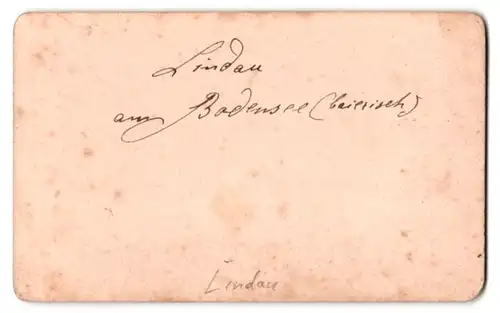 Lindau
am Bodensee (baierisch)
Lindau